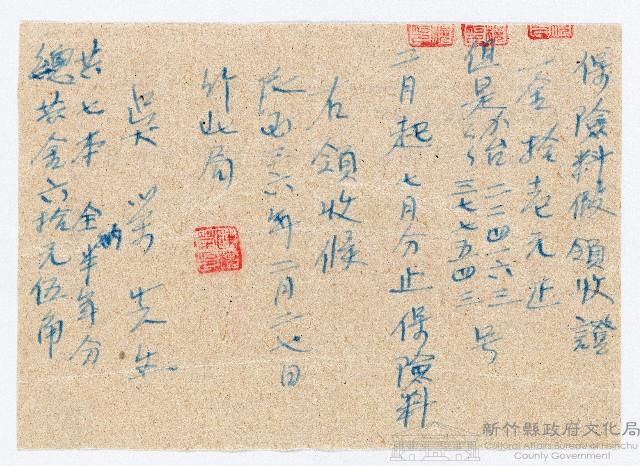 保險料假領收證
一金拾壱元止
但是ハ台二二四六三
三七七五四三号
二月起七月分止保險料
右領收候
民国三六年二月二七日
竹北局
吳 萬 先生
共七本 全半年分
納
總共金六拾元伍角
新竹縣政府文化局
Cultural Affairs Bureau of Hsinchu
County Government